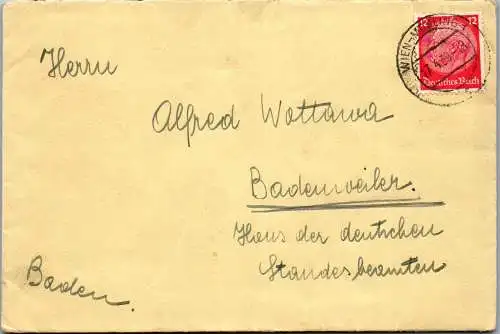 12 12
Deutsches Reich
WIEN
Herrn
Alfred Wottawa
Badenweiler.
Haus der deutschen
Standesbeamten
Baden.